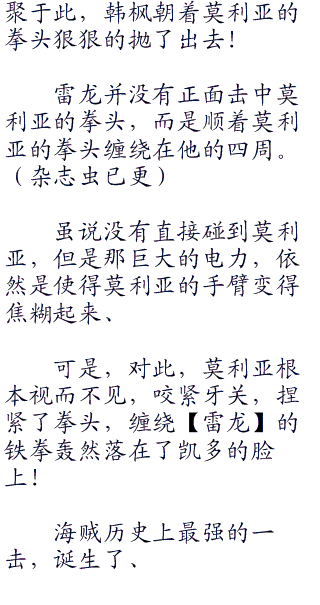 聚于此，韩枫朝着莫利亚的
拳头狠狠的抛了出去！
雷龙并没有正面击中莫
利亚的拳头，而是顺着莫利
亚的拳头缠绕在他的四周。
（杂志虫已更）
虽说没有直接碰到莫利
亚，但是那巨大的电力，依
然是使得莫利亚的手臂变得
焦糊起来、
可是，对此，莫利亚根
本视而不见，咬紧牙关，捏
紧了拳头，缠绕【雷龙】的
铁拳轰然落在了凯多的脸
上！
海贼历史上最强的一
击，诞生了、